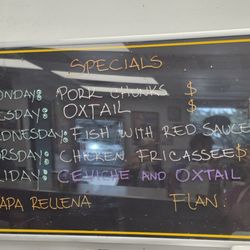 SPECIALS
ONDAY: PORK CHUNKS $
ESDAY: OXTAIL $
DNESDAY: FISH WITH RED SAUCE
RSDAY: CHICKEN FRICASSEE $
IDAY: CEVICHE AND OXTAIL
APA RELLENA FLAN: